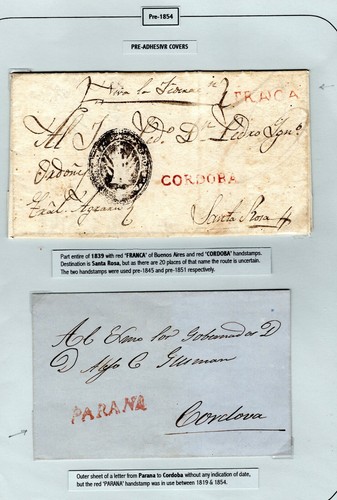 Pre-1854
PRE-ADHESIVR COVERS
Viva la Federacion
FRANCA
Al Pedro
CORDOBA
Santa Rosa
Part entire of 1839 with red 'FRANCA' of Buenos Aires and red 'CORDOBA' handstamps.
Destination is Santa Rosa, but as there are 20 places of that name the route is uncertain.
The two handstamps were used pre-1845 and pre-1851 respectively.
Al Exmo Sor Gobernador D
D C Gusman
PARANA
Cordova
Outer sheet of a letter from Parana to Cordoba without any indication of date,
but the red 'PARANA' handstamp was in use between 1819 & 1854.